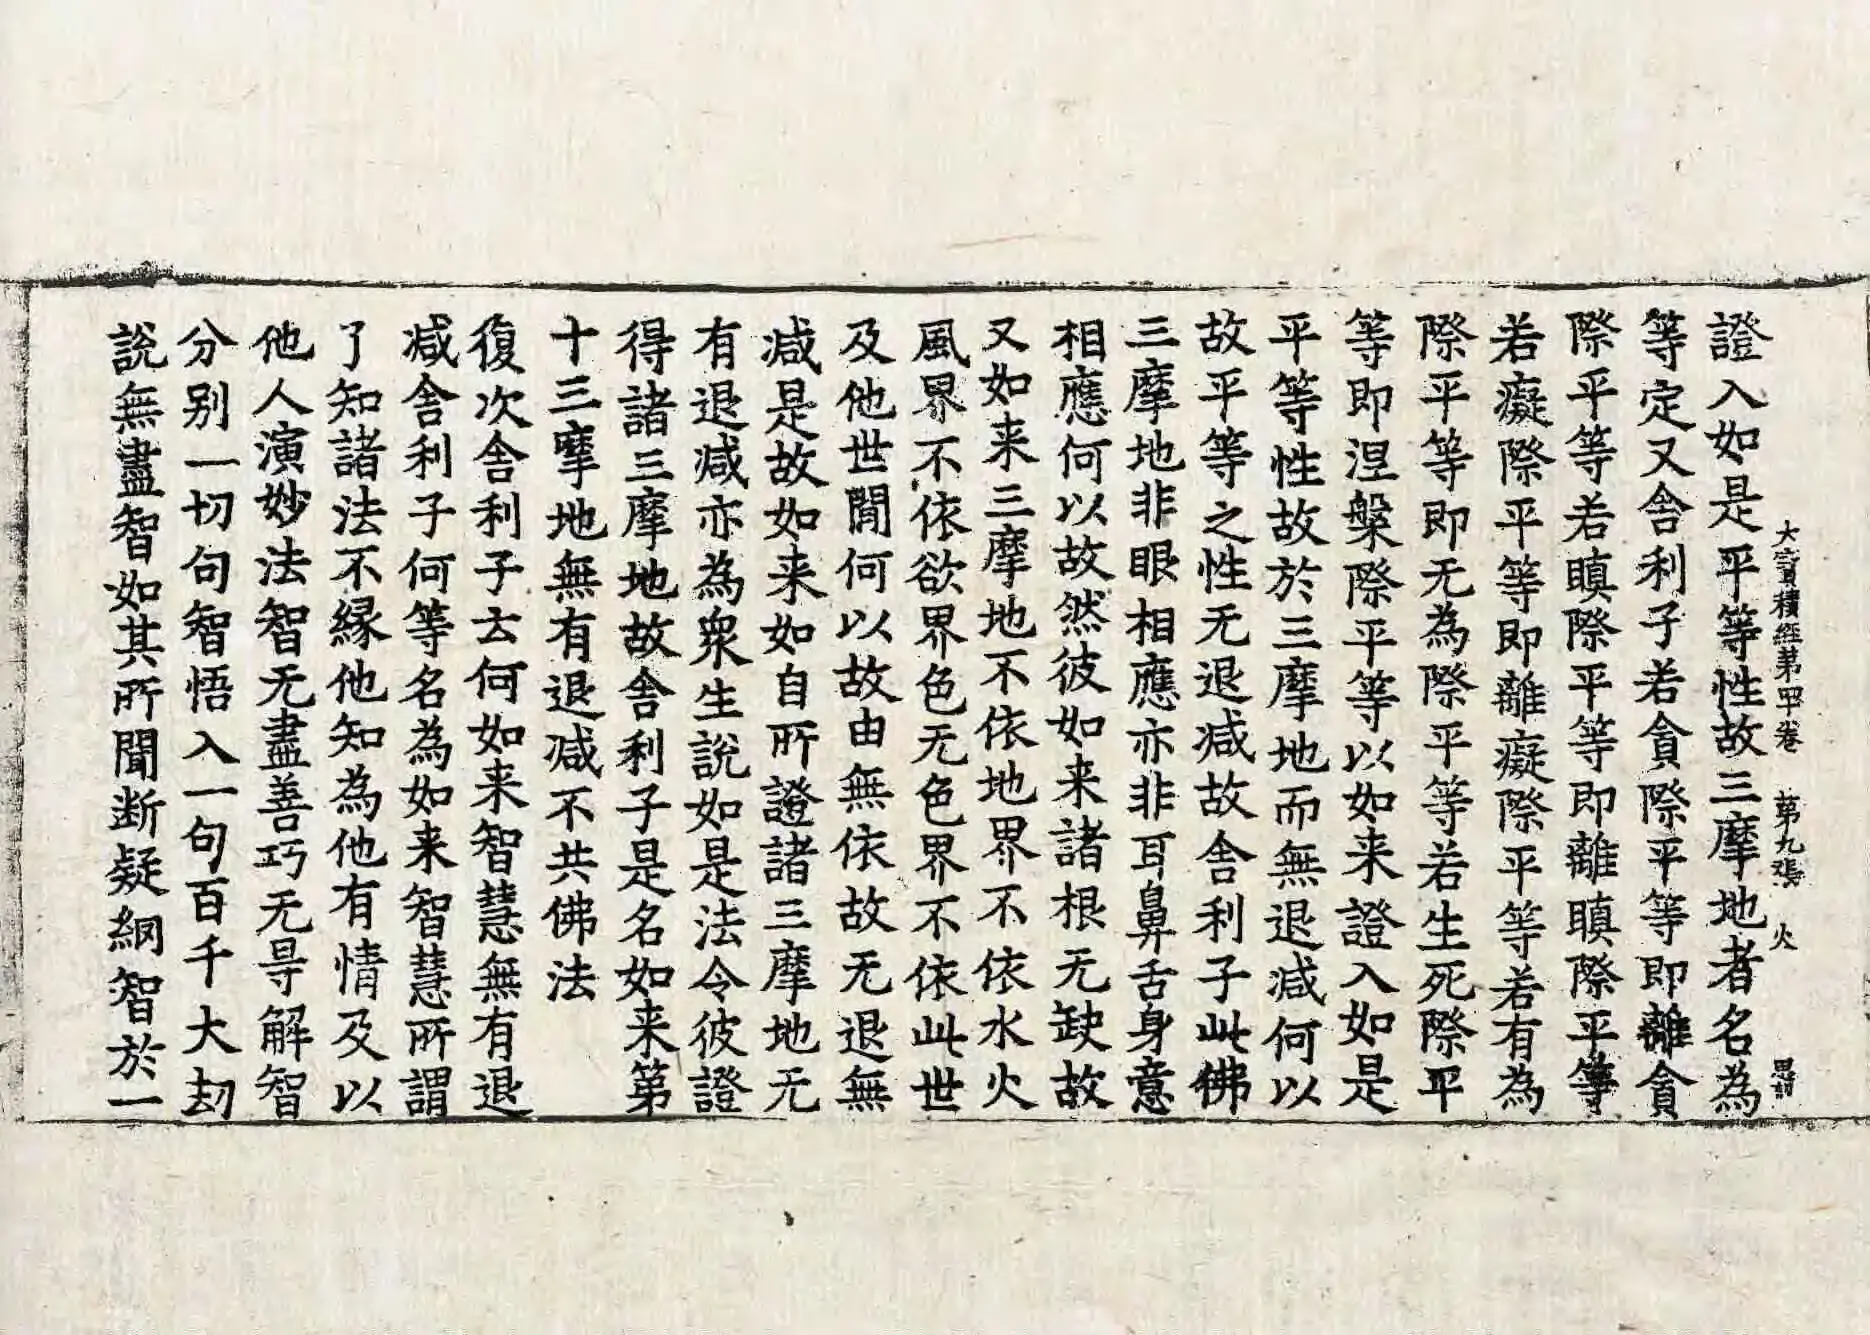 大寶積經第四十卷　第九張　火
證入如是平等性故三摩地者名為
等定又舍利子若貪際平等即離貪
際平等若瞋際平等即離瞋際平等
若癡際平等即離癡際平等若有為
際平等即无為際平等若生死際平
等即涅槃際平等以如来證入如是
平等性故於三摩地而無退減何以
故平等之性无退减故舍利子此佛
三摩地非眼相應亦非耳鼻舌身意
相應何以故然彼如来諸根无缺故
又如来三摩地不依地界不依水火
風界不依欲界色无色界不依此世
及他世間何以故由無依故无退無
减是故如来如自所證諸三摩地无
有退减亦為衆生說如是法令彼證
得諸三摩地故舍利子是名如来第
十三摩地無有退减不共佛法
復次舍利子云何如来智慧無有退
减舍利子何等名為如来智慧所謂
了知諸法不縁他知為他有情及以
他人演妙法智无盡善巧无㝵解智
分别一切句智悟入一句百千大劫
說無盡智如其所聞断疑網智於一